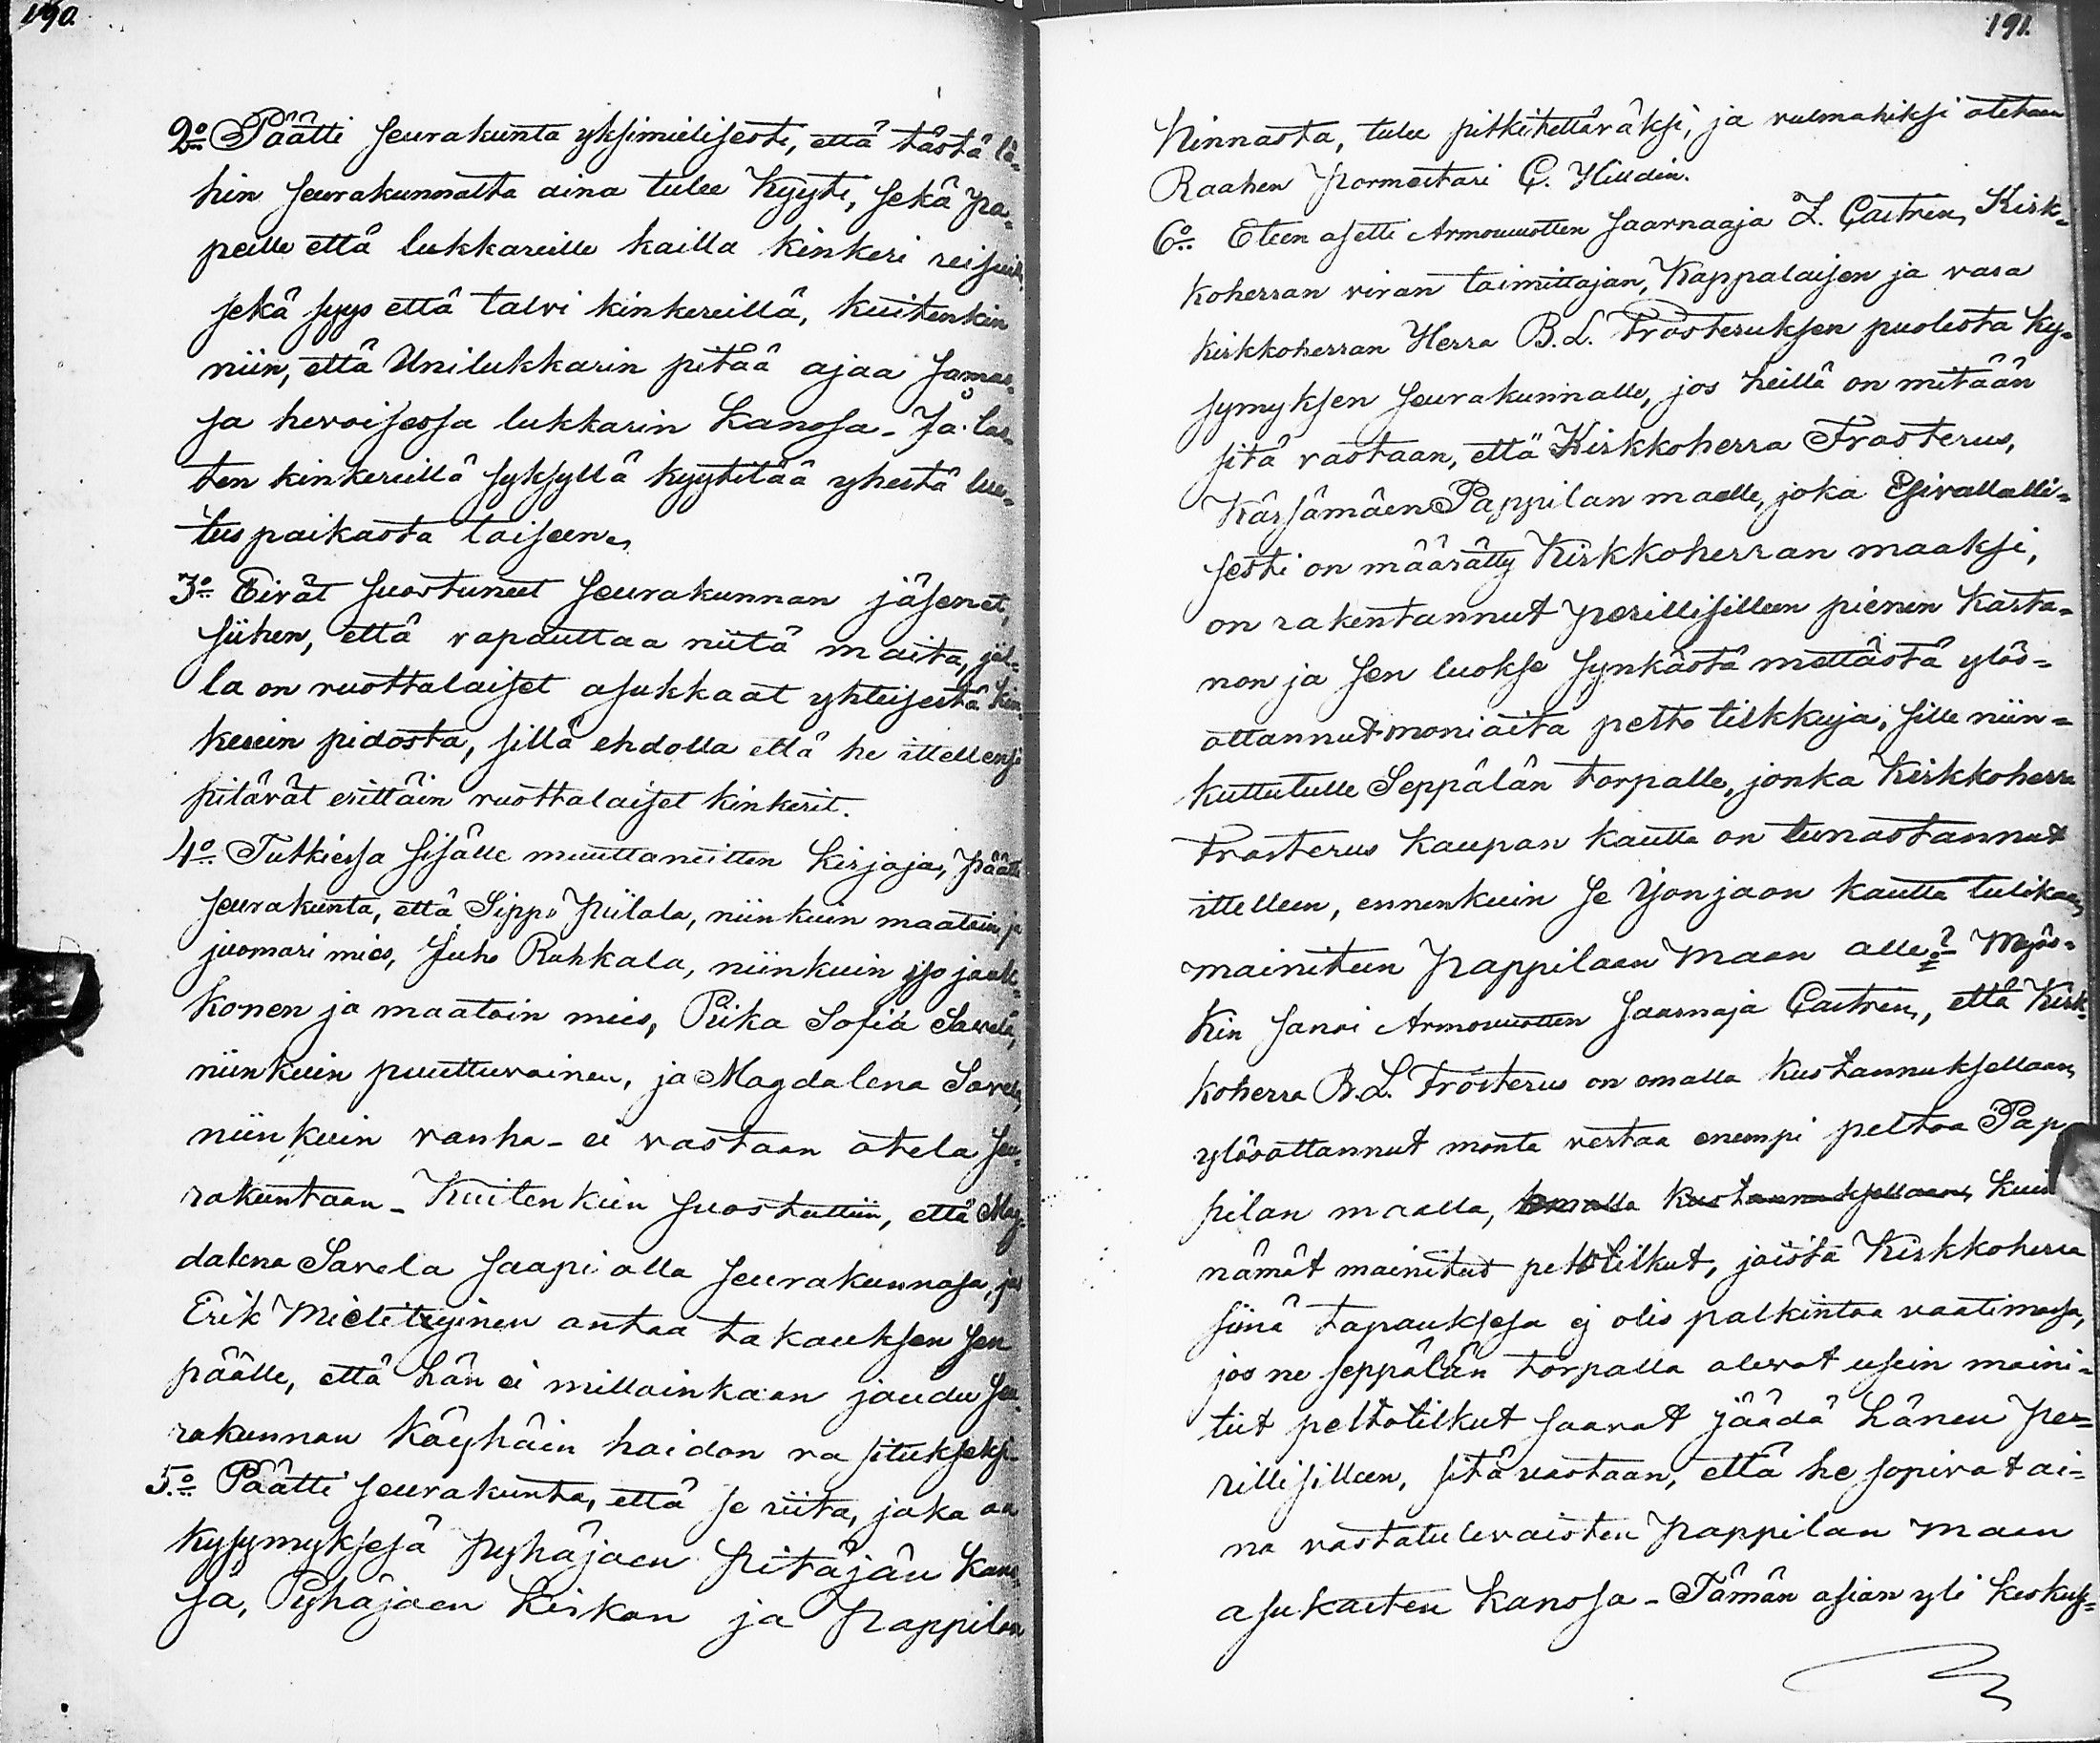 190.
2:o Päätti seurakunta yksimielisesti, että tästä lä-
hin seurakunnalta aina tulee kyyti, sekä pa-
peille että lukkareille kailla kinkeri reisuilla
sekä syys että talvi kinkereillä, kuitenkin
niin, että Unilukkarin pitää ajaa samas-
sa hevoisessa lukkarin kanssa - Ja las-
ten kinkereillä syksyllä kyytitää yhestä lue-
tus paikasta taiseen.
3:o Eivät suostuneet seurakunnan jäsenet,
siihen, että vapauttaa niitä maita, jol-
la on ruottalaiset asukkaat yhteisestä kin-
kerein pidosta, sillä ehdolla että he ittellensä
pitävät erittäin ruottalaiset kinkerit.
4:o Tutkiessa sisälle muuttaneitten kirjoja, päätti
seurakunta, että Sippo Piilola, niinkuin maatoin ja
juomari mies, Juho Rahkala, niinkuin iso joukk-
konen ja maatoin mies, Piika Sofia Savela,
niinkuin puuttuvainen, ja Magdalena Savela,
niinkuin vanha - ei vastaan oteta seu-
rakuntaan - Kuitenkin suostuttiin, että Mag-
dalena Savela saapi olla seurakunnasa, jos
Erik Mieletyinen antaa takauksen sen
päälle, että hän ei milloinkaan joudu seu-
rakunnan käyhäin hoidon rasitukseksi
5:o Päätti seurakunta, että se riita, joka on
kysymyksesä Pyhäjoen pitäjän kans-
sa, Pyhäjoen kirkon ja pappilan
191.
hinnasta, tulee pitkitettäväksi, ja valmahiksi otetaan
Raahen Pormestari C. Hilldin.
6:o Eteen asetti Armovuotten saarnaaja Z. Castren, Kirk-
koherran viran toimittajan, Kappalaisen ja vara
kirkkoherran Herra B. L. Frosteruksen puolesta ky-
symyksen seurakunnalle, jos heillä on mitään
sitä vastaan, että Kirkkoherra Frosterus,
Kärsämäen Pappilan maalle, joka Esivallalli-
sesti on määrätty Kirkkoherran maaksi,
on rakentannut perillisilleen pienen karta-
non ja sen luokse synkästä mettästä ylös-
ottannut moniaita pelto tilkkuja, sille niin-
kuttutulle Seppälän torpalle, jonka Kirkkoherra
Frosterus kaupan kautta on lunastannut
ittelleen, ennenkuin se Yonjaon kautta tuli
mainiteun Pappilaan maan alle? Myös-
kin sanoi Armovuotten saarnaja Castren, että Kirk-
koherra B. L. Frosterus on omalla kustannuksellaan,
ylösottannut monta vertaa enempi peltoa Pap-
pilan maalla, omalla kustannuksellaan, kuin
nämät mainitud peltotilkut, joista Kirkkoherra
siinä tapauksesa ej olis palkintoa vaatimasa,
jos ne seppälän torpalla olevat usein maini-
tut peltotilkut saavat jäädä hänen pe-
rillisilleen, sitä vastaan, että he sopivat ai-
na vastatulevaisten Pappilan maan
asukasten kanssa - Tämän asian yli keskus-